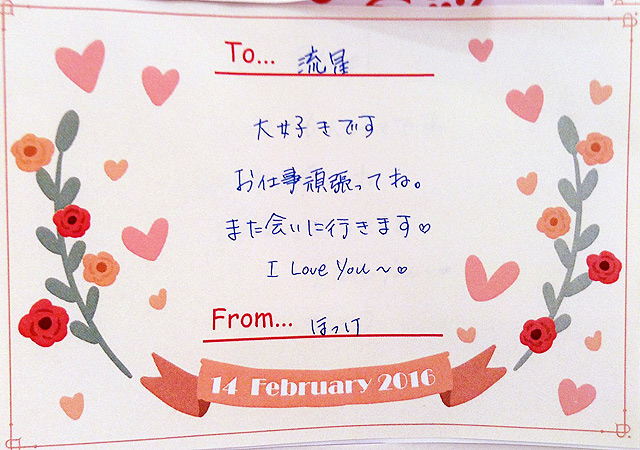 To... 流星
大好きです
お仕事頑張ってね。
また会いに行きます♡
I Love You~♡
From... ほっけ
14 February 2016